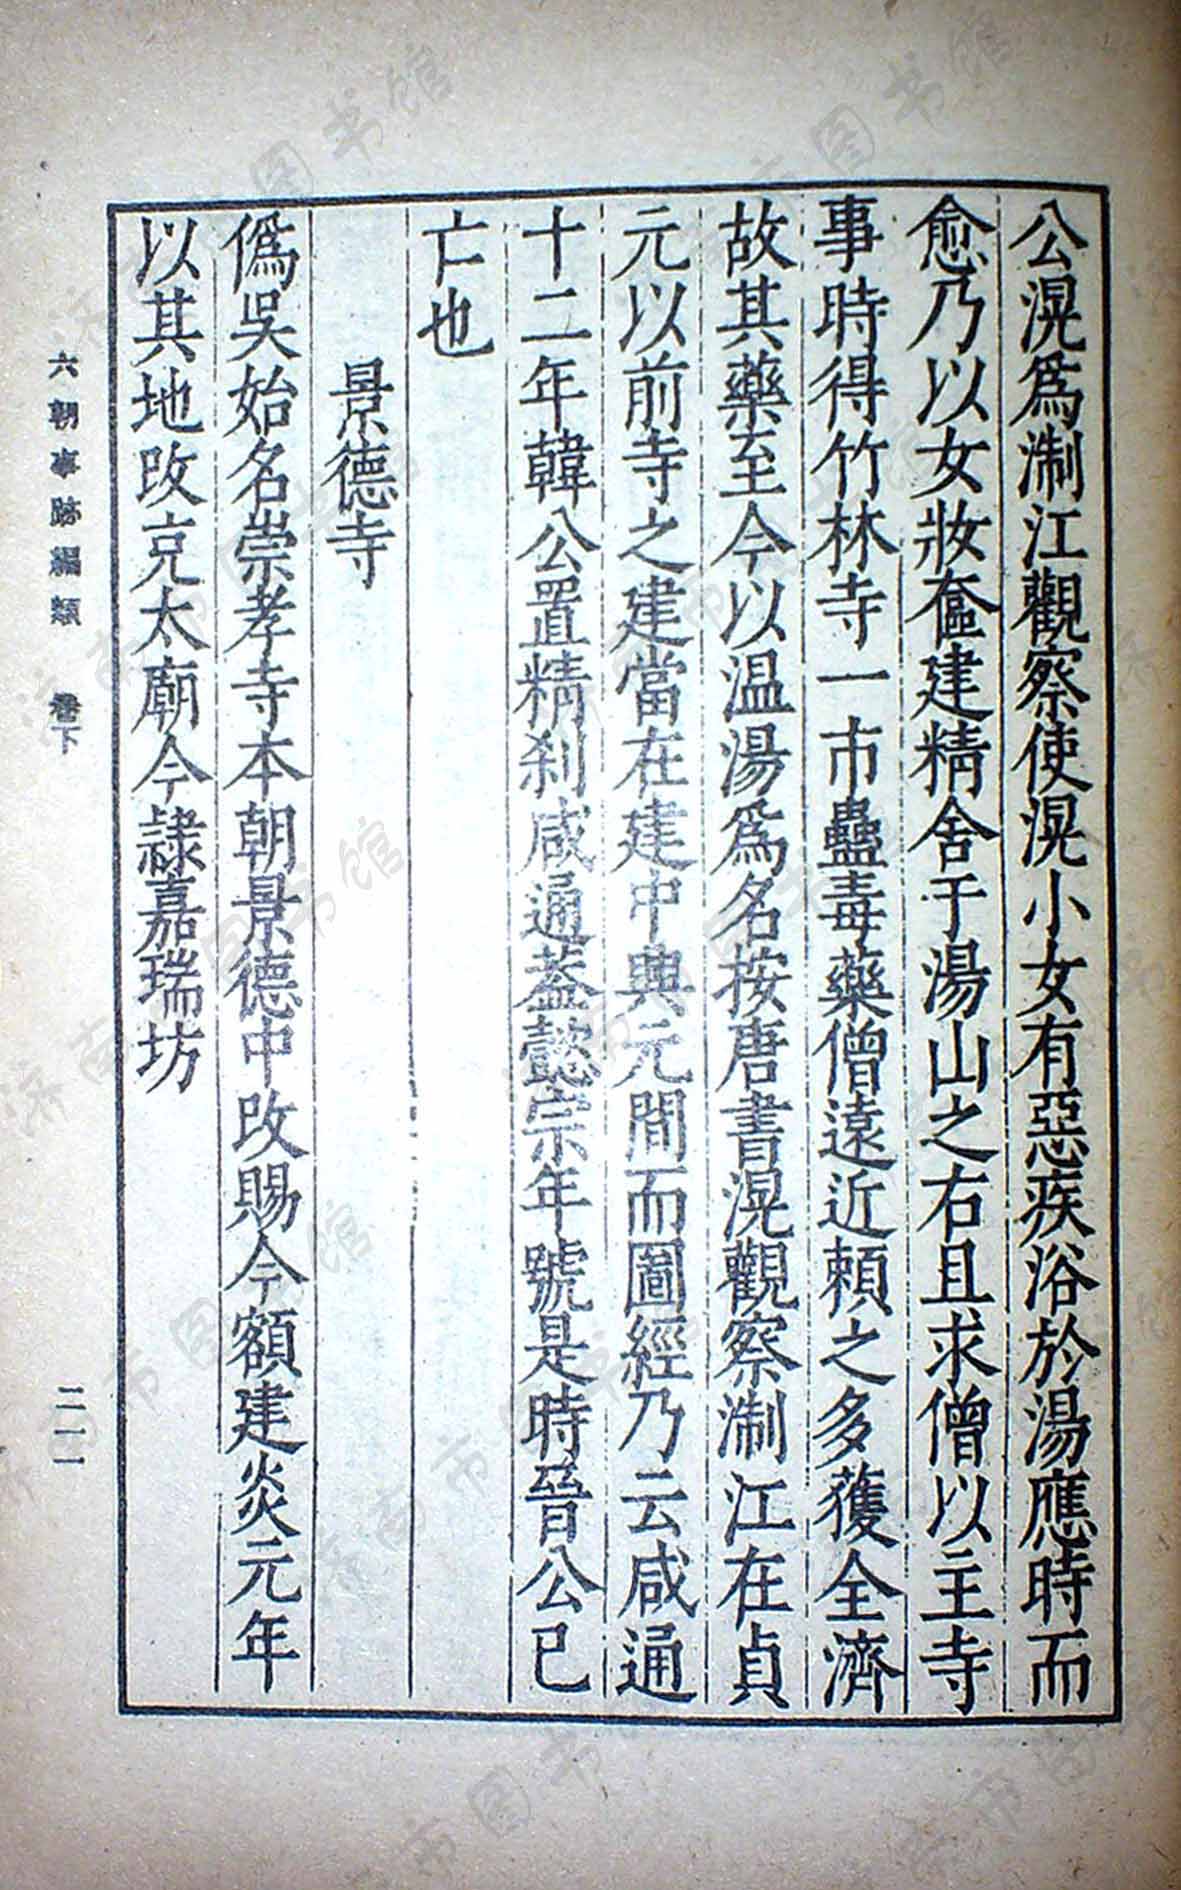 公滉爲淛江觀察使滉小女有惡疾浴於湯應時而
愈乃以女妝奩建精舍于湯山之右且求僧以主寺
事時得竹林寺一市蠱毒藥僧遠近頼之多獲全濟
故其藥至今以温湯爲名按唐書滉觀察淛江在貞
元以前寺之建當在建中興元間而圖經乃云咸通
十二年韓公置精刹咸通蓋懿宗年號是時晉公已
亡也
景德寺
僞吳始名崇孝寺本朝景德中改賜今額建炎元年
以其地改充太廟今隷嘉瑞坊
六朝事跡編類 卷下
二一一
济南市图书馆